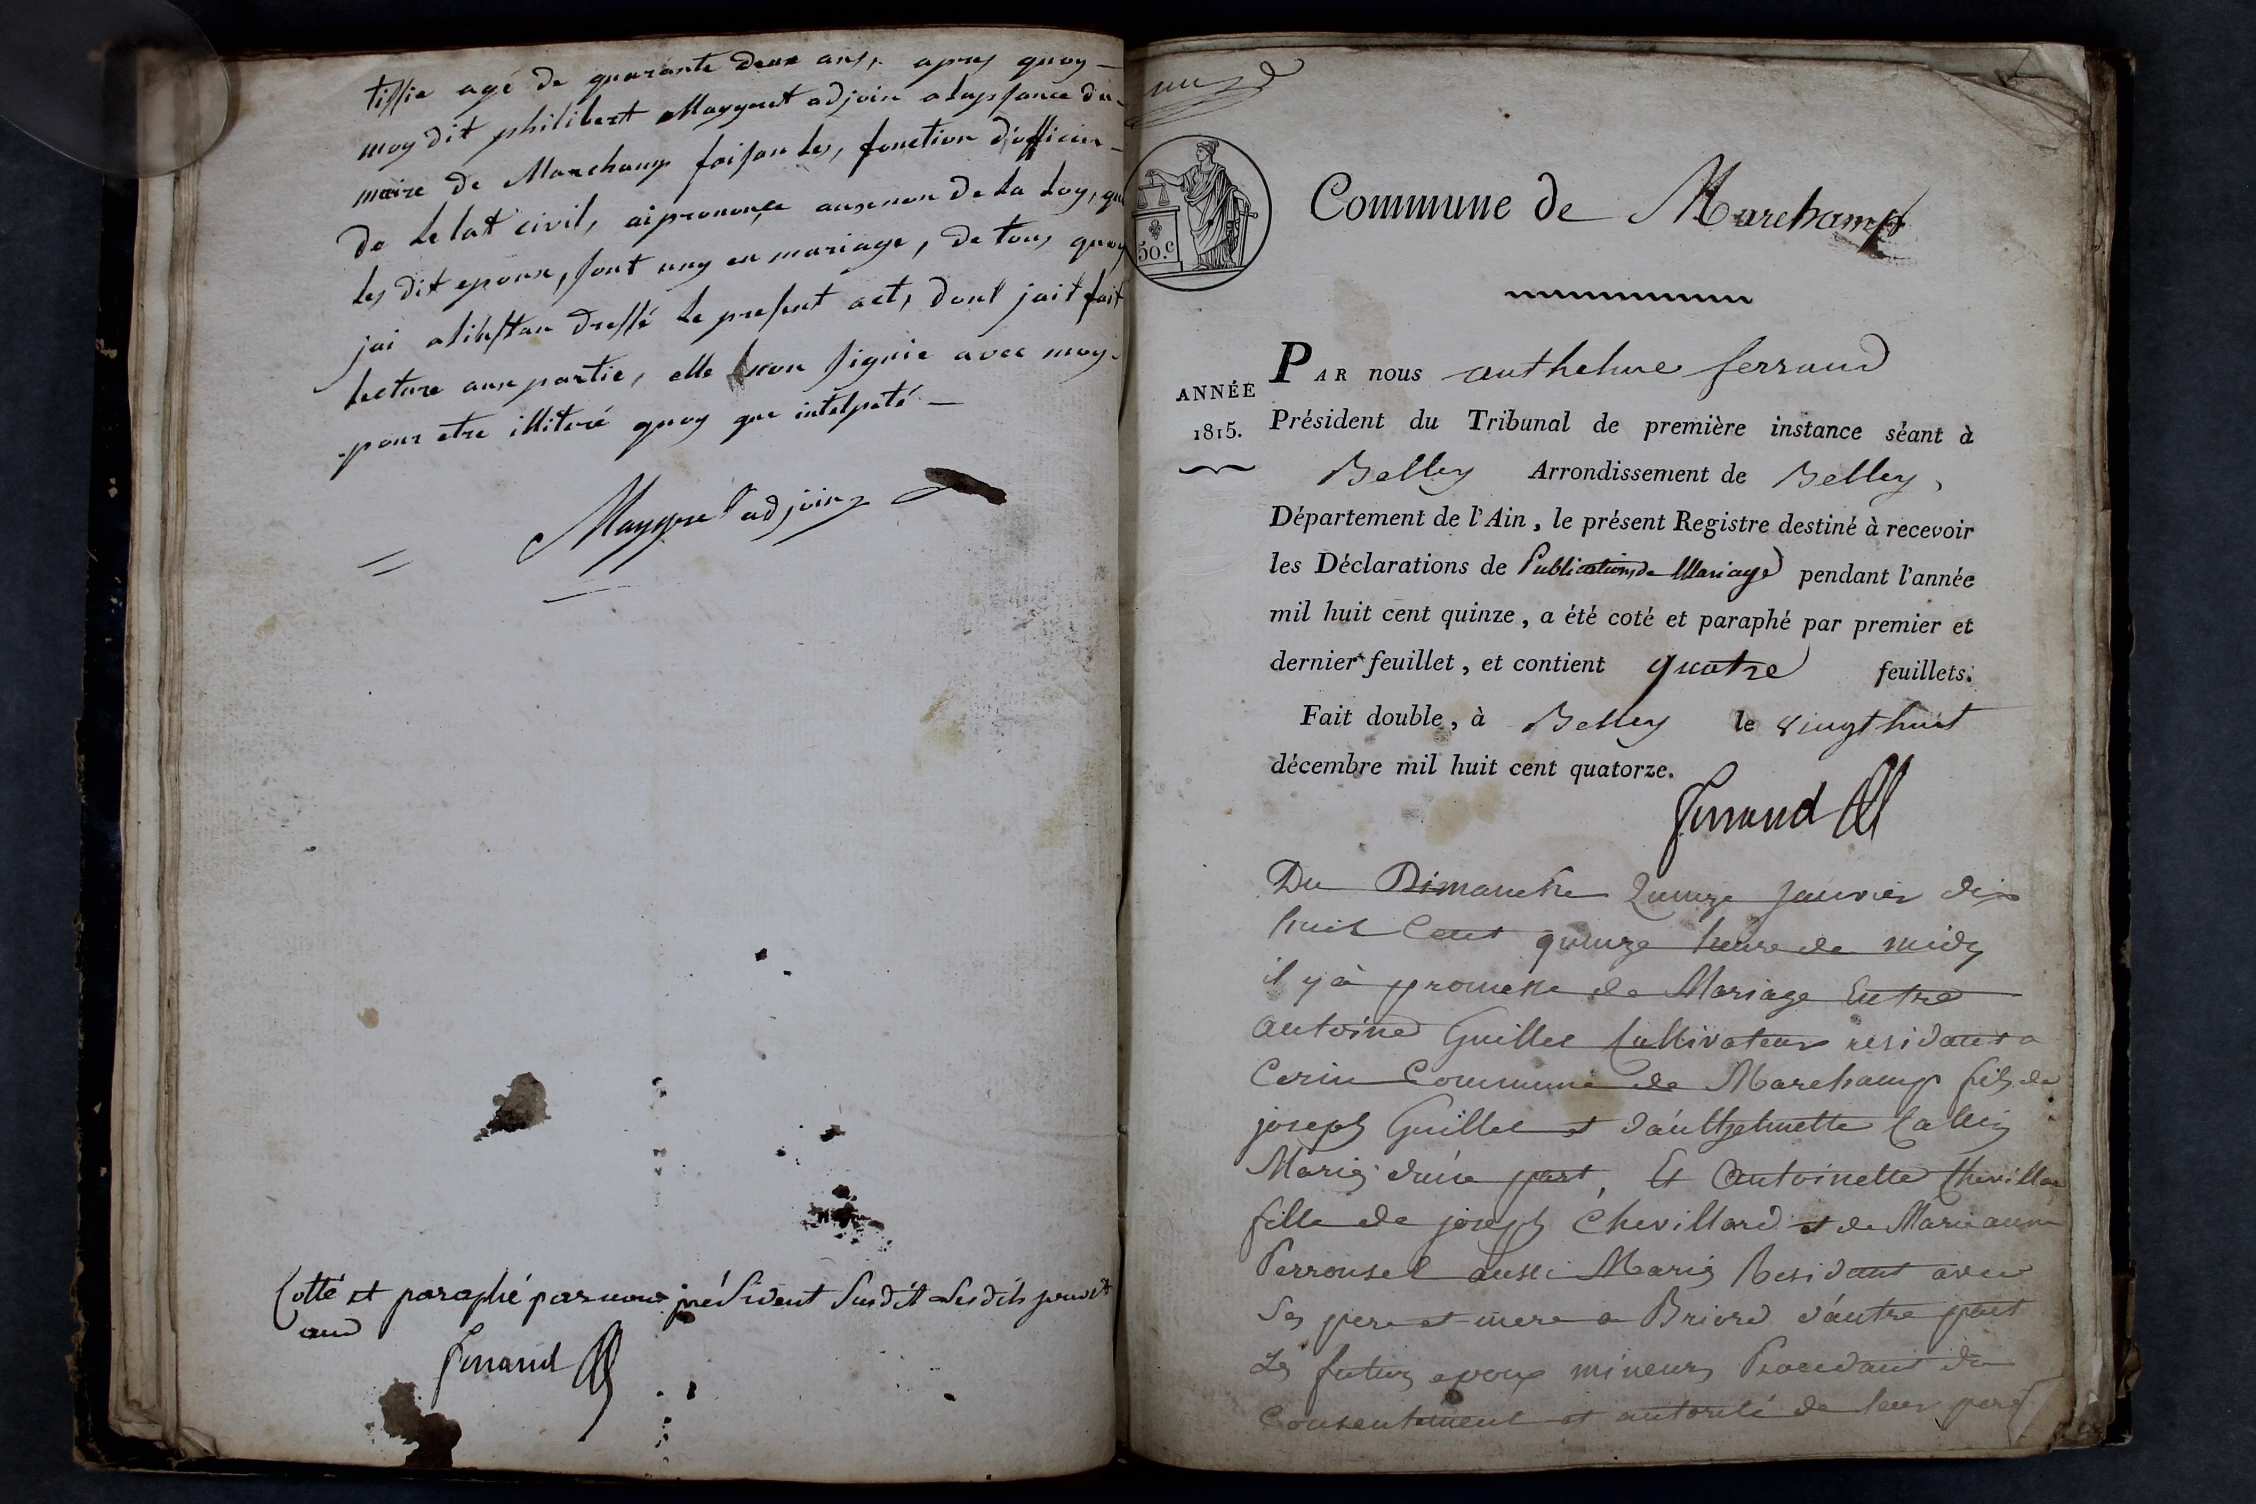 tissie agé de quarante deux ans, apres quoy
moy dit philibert Mayguet adjoin a lapsance du
maire de Marchamp faisan les, fonction d'officier
de Letat civil, ai prononce au nom de La Loy, que
les dit epoux, sont uny en mariage, de tous quoy
jai alinstan dressé Le present act, dont jait fait
Lecture aux partie, elle non signie avec moy
pour etre illiteré quoy que intelpeté
adjoin
Cotté et paraphé par nous président susdit Lesdits jour et
and
Ferrand
50.c
Commune de Marchamp
ANNÉE
1815.
PAR nous anthelme ferrand
Président du Tribunal de première instance séant à
Belley Arrondissement de Belley,
Département de l'Ain, le présent Registre destiné à recevoir
les Déclarations de Publications de Mariage pendant l'année
mil huit cent quinze, a été coté et paraphé par premier et
dernier feuillet, et contient quatre feuillets.
Fait double, à Belley le vingt huit
décembre mil huit cent quatorze.
Ferrand
Du Dimanche Quinze Janvier dix
huit Cent quinze heure de midy
il y à promesse de Mariage Entre
Antoine Guillet Cultivateur residant a
Cerin Commune de Marchamp fils de
joseph Guillet et d'anthelmette Callin
Mariés d'une part, Et Antoinette Chevillar
fille de joseph Chevillard et de Marie anne
Perrousel aussi Mariés Residant avec
Ses pere et mere a Briord d'autre part
Les futurs epoux mineurs Procedant du
Consentement et autorité de leur pere